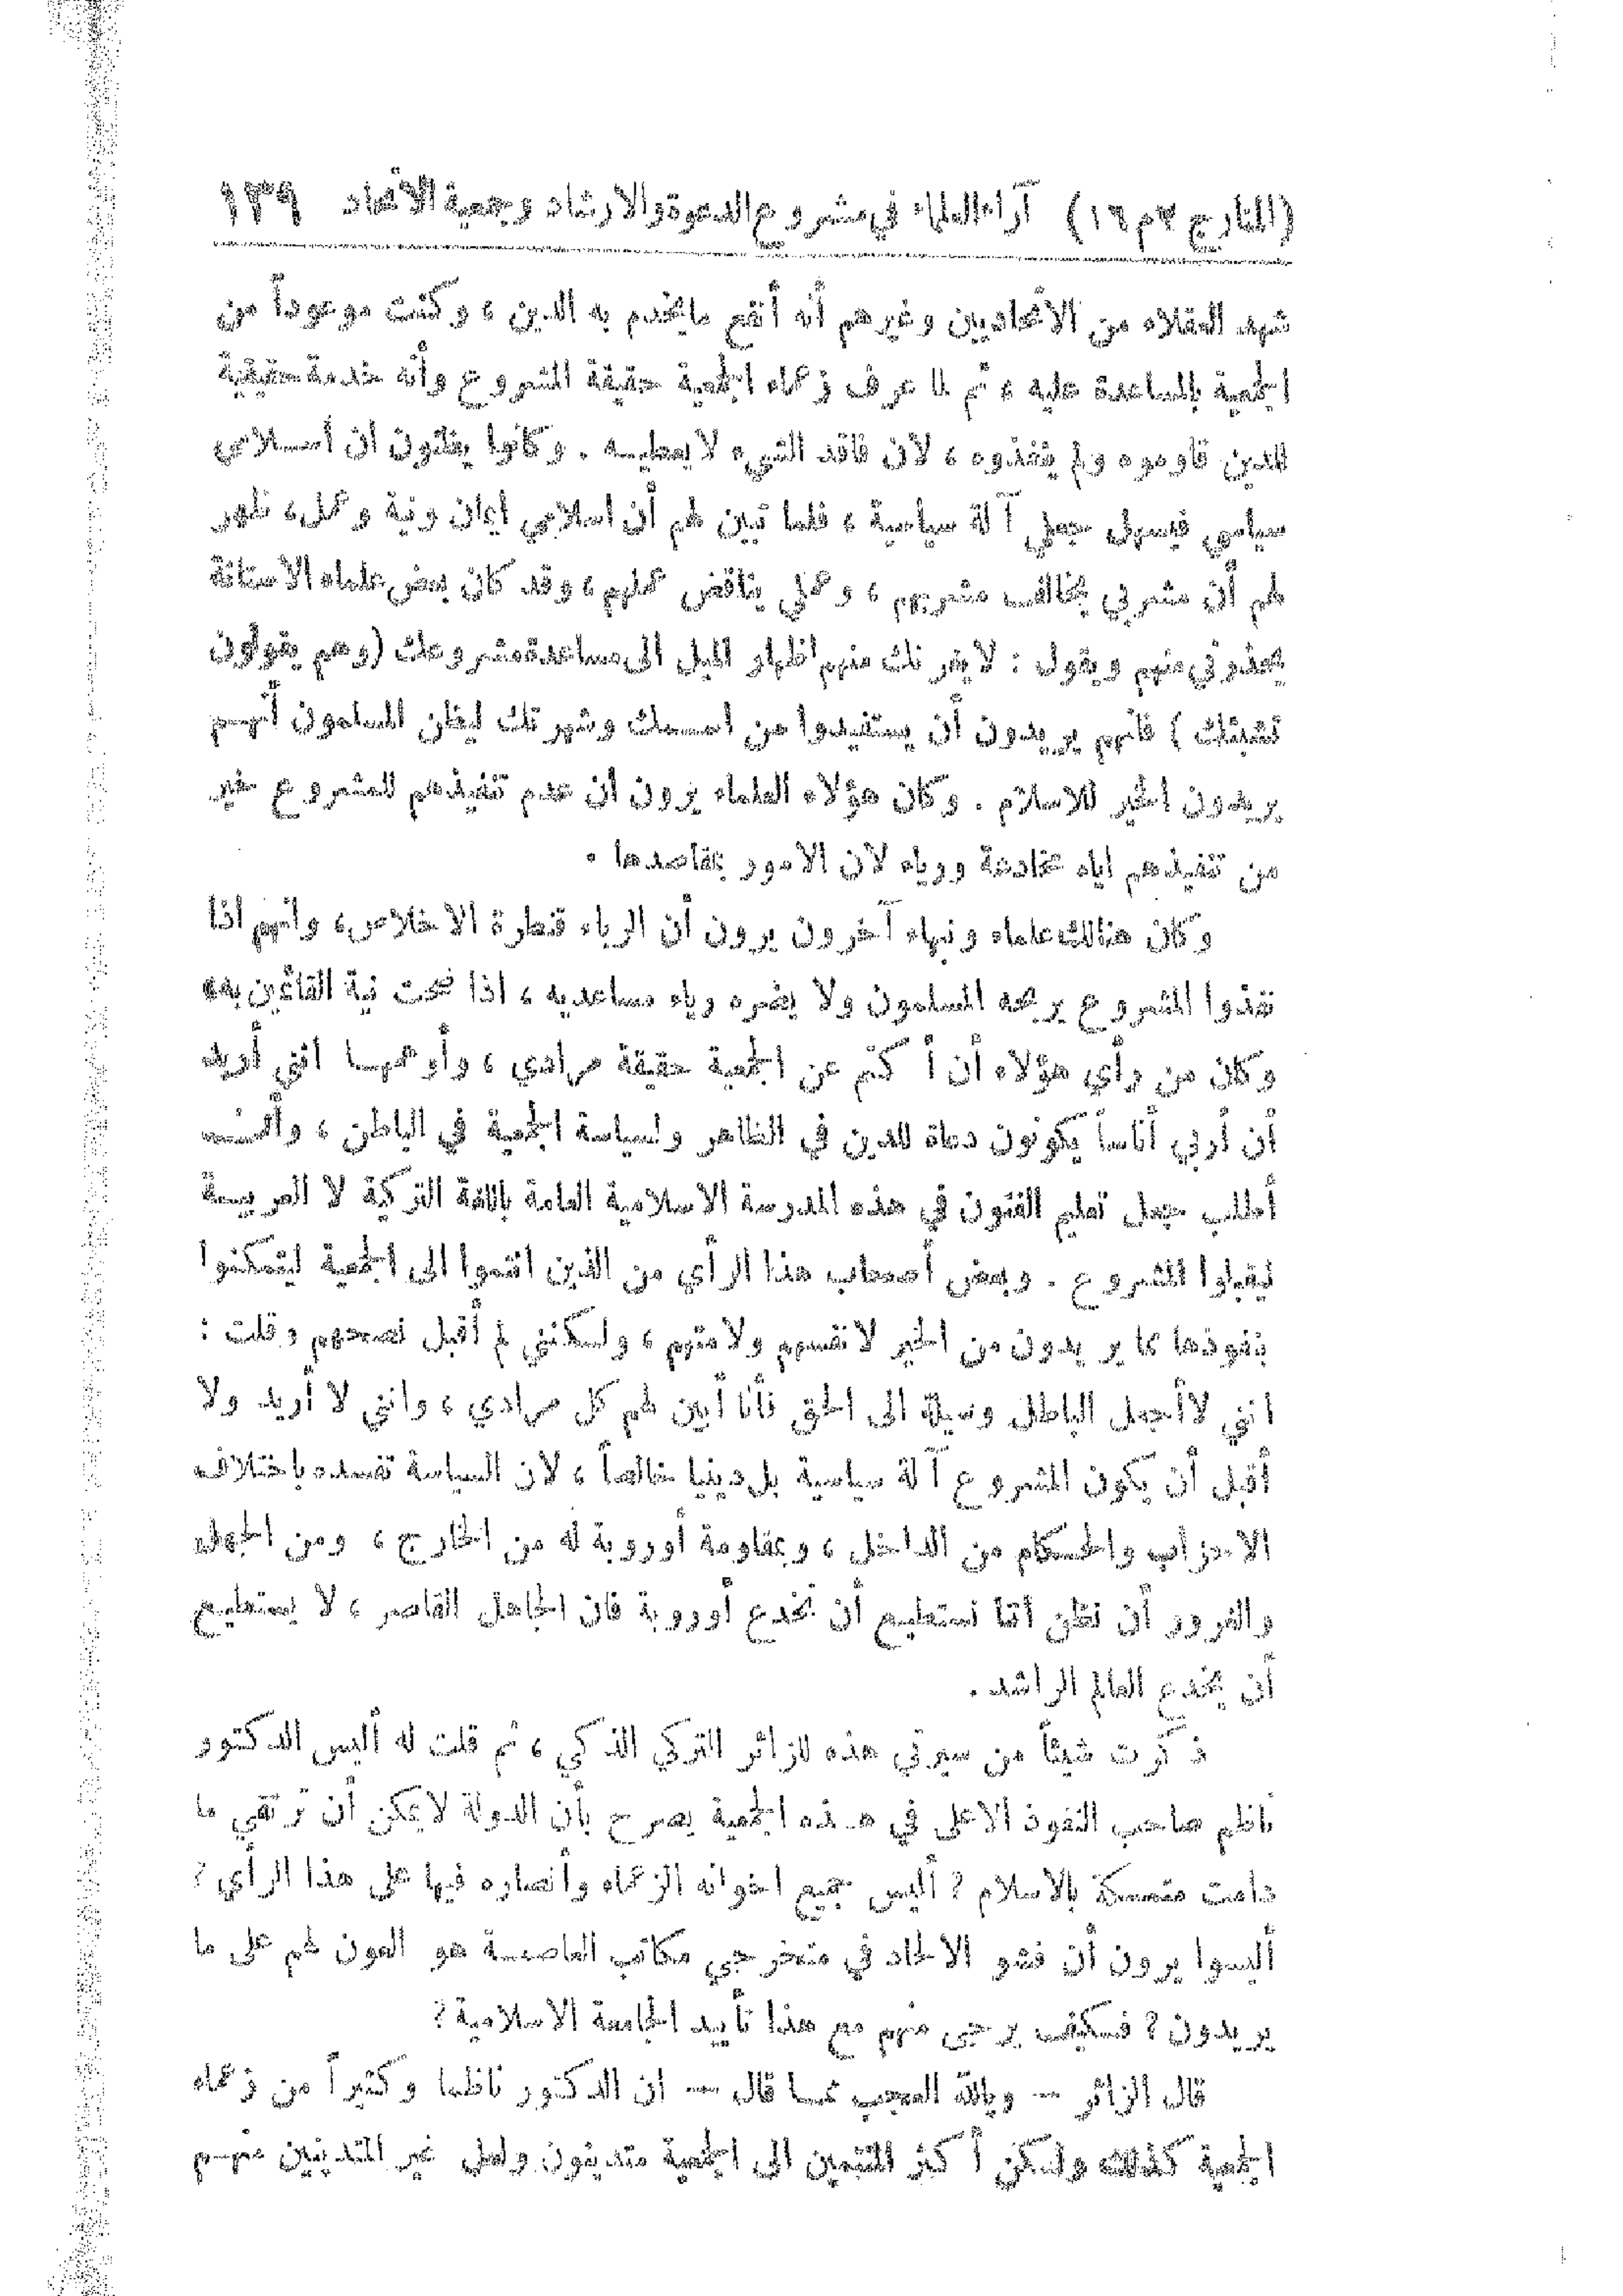 (المنار ج ٢ م ١٦) آراء العلماء في مشروع الدعوة والارشاد وجمعية الاتحاد ١٣٩
شهد العقلاء من الاتحاديين وغيرهم أنه أنفع ما يخدم به الدين ، وكنت موعوداً من
الجمعية بالمساعدة عليه ، ثم لما عرف زعماء الجمعية حقيقة المشروع وأنه خدمة حقيقية
للدين قاوموه ولم ينفذوه ، لان فاقد الشيء لا يعطيه . وكانوا يظنون ان اسلامي
سياسي فيسهل جعلي آلة سياسية ، فلما تبين لهم أن اسلامي ايمان ونية وعمل، ظهر
لهم أن مشربي يخالف مشربهم ، وعملي يناقض عملهم ، وقد كان بعض علماء الاستانة
يحذرني منهم ويقول : لا يغرنك منهم اظهار الميل الى مساعدة مشروعك (وهم يقولون
تشبثك ) فانهم يريدون أن يستفيدوا من اسمك وشهرتك ليظن المسلمون أنهم
يريدون الخير للاسلام . وكان هؤلاء العلماء يرون ان عدم تنفيذهم للمشروع خير
من تنفيذهم اياه مخادعة ورياء لان الامور بمقاصدها .
وكان هنالك علماء ونبهاء آخرون يرون أن الرياء قنطرة الاخلاص، وانهم اذا
نفذوا المشروع يربحه المسلمون ولا يضره رياء مساعديه ، اذا صحت نية القائمين به،
وكان من رأي هؤلاء أن أكتم عن الجمعية حقيقة مرادي ، وأوهمها انني أريد
أن أربي أناساً يكونون دعاة للدين في الظاهر ولسياسة الجمعية في الباطن ، وأن
أطلب جعل تعليم الفنون في هذه المدرسة الاسلامية العامة باللغة التركية لا العربية
ليقبلوا المشروع . وبعض أصحاب هذا الرأي من الذين انتموا الى الجمعية ليتمكنوا
بنفوذها مما يريدون من الخير لانفسهم ولامتهم ، ولكنني لم أقبل نصحهم وقلت :
انني لا أجعل الباطل وسيلة الى الحق فأنا أبين لهم كل مرادي ، وانني لا أريد ولا
أقبل أن يكون المشروع آلة سياسية بل دينيا خالصاً ، لان السياسة تفسده باختلاف
الاحزاب والحكام من الداخل ، وبمقاومة أوروبة له من الخارج ، ومن الجهل
والغرور أن نظن أننا نستطيع أن نخدع أوروبة فان الجاهل القاصر ، لا يستطيع
أن يخدع العالم الراشد .
ذكرت شيئاً من سيرتي هذه للزائر التركي الذكي ، ثم قلت له أليس الدكتور
ناظم صاحب النفوذ الاعلى في هذه الجمعية يصرح بأن الدولة لا يمكن أن ترتقي ما
دامت متمسكة بالاسلام ؟ أليس جميع اخوانه الزعماء وأنصاره فيها على هذا الرأي ؟
أليسوا يرون أن فشو الالحاد في متخرجي مكاتب العاصمة هو العون لهم على ما
يريدون ؟ فكيف يرجى منهم مع هذا تأييد الجامعة الاسلامية ؟
قال الزائر — ويالله العجب مما قال — ان الدكتور ناظما وكثيراً من زعماء
الجمعية كذلك ولكن أكثر المنتمين الى الجمعية متدينون ولعل غير المتدينين منهم